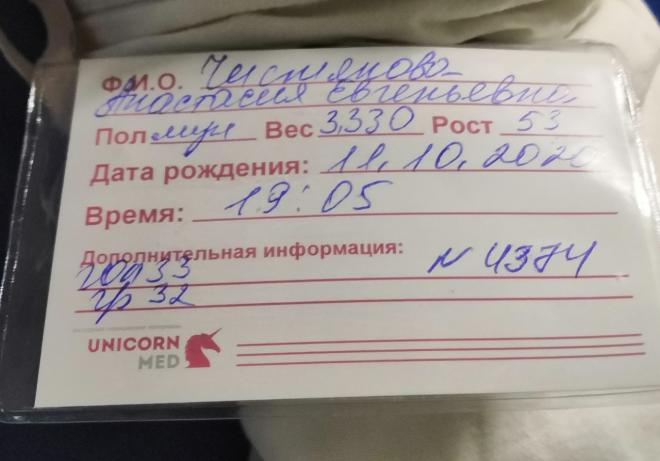 Ф.И.О. Чистякова
Анастасия Евгеньевна
Пол муж Вес 3330 Рост 53
Дата рождения: 11.10.2020
Время: 19:05
Дополнительная информация:
гол 33 N 4374
гр 32
UNICORN
MED